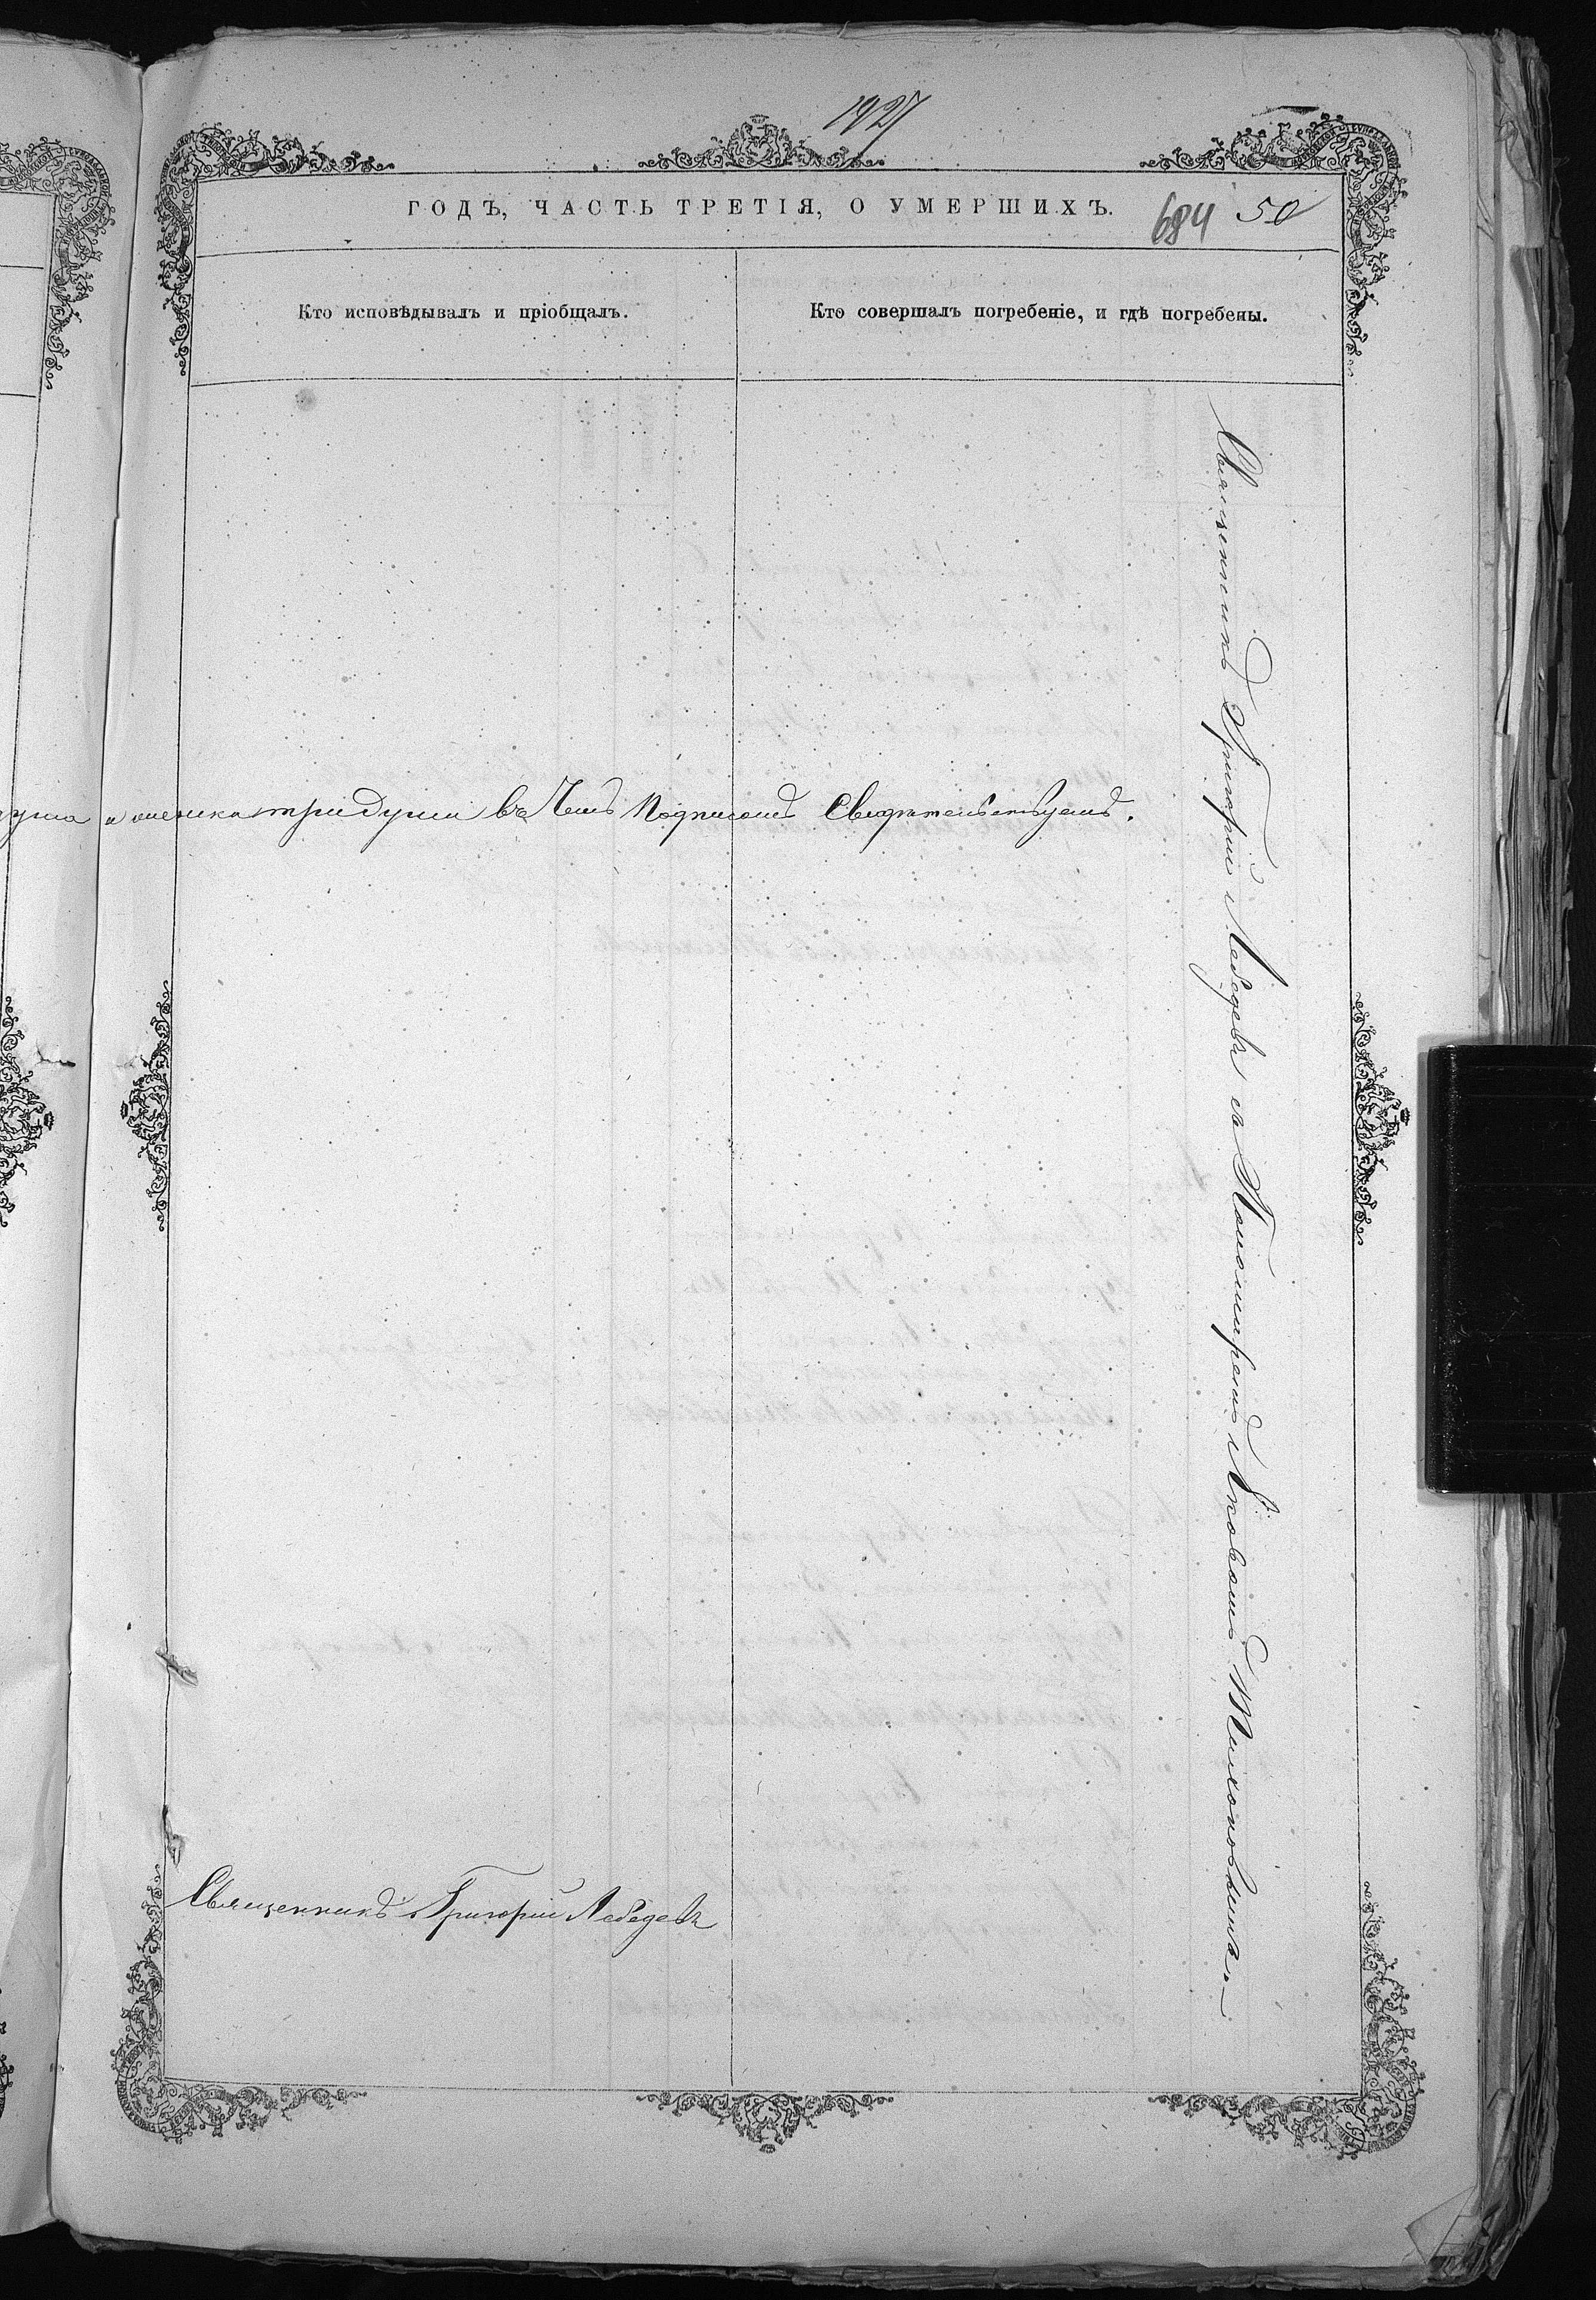 1927
ГОДЪ, ЧАСТЬ ТРЕТІЯ, О УМЕРШИХЪ.
684 50
Кто исповѣдывалъ и пріобщалъ.
Кто совершалъ погребеніе, и гдѣ погребены.
три души въ Чемъ Подписомъ Свидѣтельствуемъ.
Священникъ Григорій Лебедевъ съ Пономаремъ Яковомъ Тихоновымъ.
Священникъ Григорій Лебедевъ